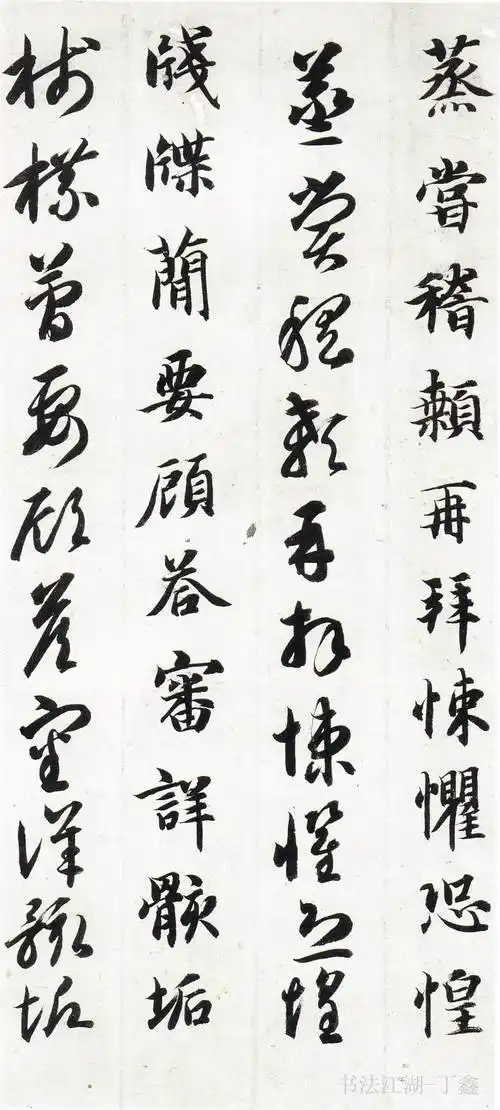 蒸嘗稽顙再拜悚懼恐惶
蒸嘗稽顙再拜悚懼恐惶
牋牒簡要顧荅審詳骸垢
牋牒簡要顧荅審詳骸垢
书法江湖-丁鑫